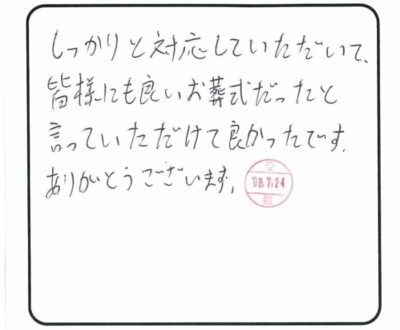 しっかりと対応していただいて、
皆様にも良いお葬式だったと
言っていただけて良かったです。
ありがとうございます。
'08.7.24